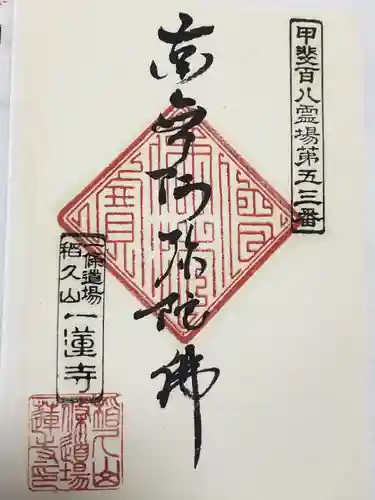 甲斐百八霊場第五三番
南無阿弥陀佛
一條道場
稻久山一蓮寺
稻久山
條道場
蓮寺印